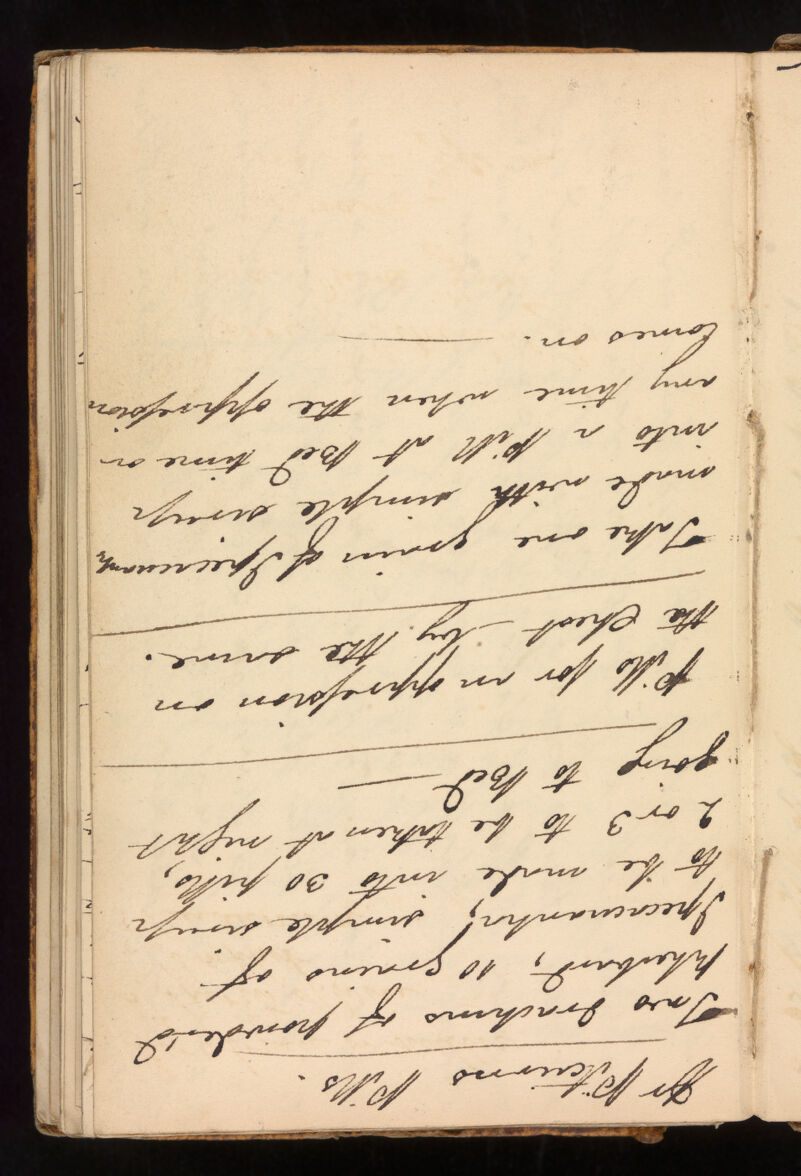 Dr Pitcairns Pills.
Two drachms of powder'd
rhubarb, 10 grains of
Ipecacuanha, simple syrup
to be made into 30 pills,
2 or 3 to be taken at night
going to Bed
Pills for an oppression on
the Chest by the same.
Take one grain of Ipecacuanh
made with simple syrup
into a Pill at Bed time or
any time when the oppression
comes on.